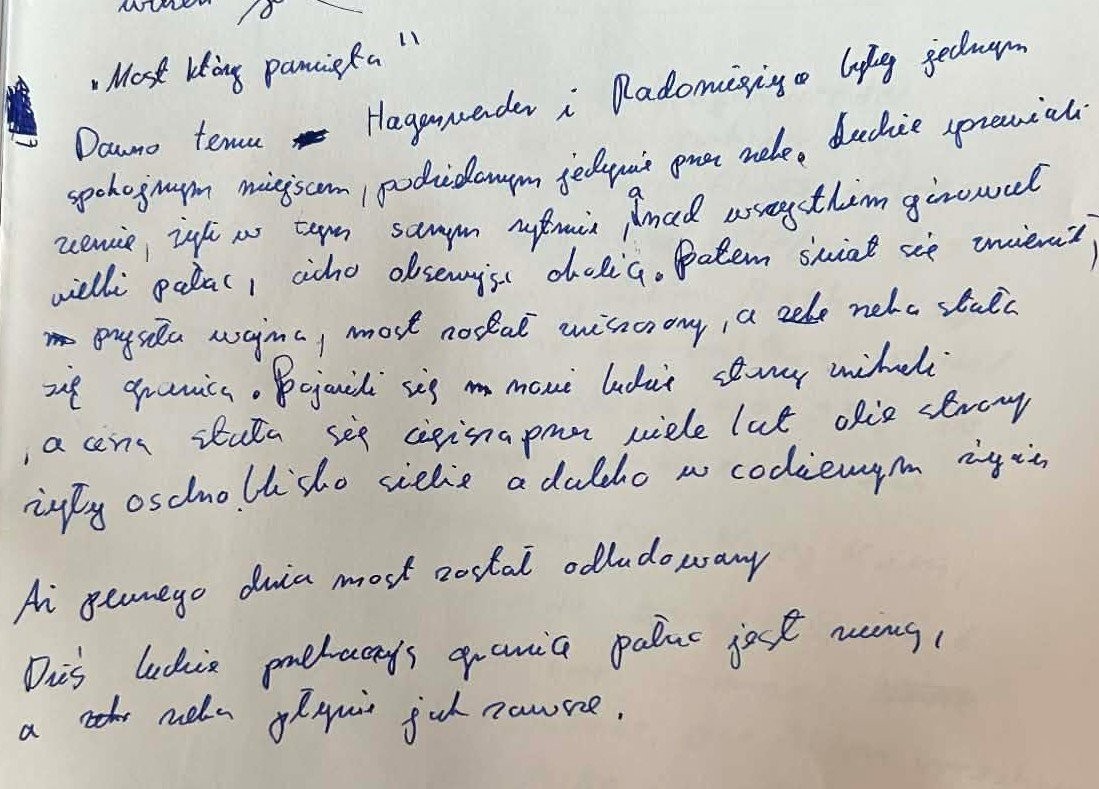 "Most który pamięta"
Dawno temu Hagenwerder i Radomierzyce były jednym
spokojnym miejscem, podzielonym jedynie przez rzekę. Ludzie uprawiali
ziemię, żyli w tym samym rytmie, a nad wszystkim górował
wielki pałac, cicho obserwując okolicę. Potem świat się zmienił,
przyszła wojna, most został zniszczony, a rzeka stała
się granicą. Pojawili się nowi ludzie starzy znikneli
, a cisza stała się cięższa przez wiele lat obie strony
żyły osobno. blisko siebie a daleko w codziennym życiu
Aż pewnego dnia most został odbudowany
Dziś ludzie przekraczają granicę pałac jest ruiną,
a rzeka płynie jak zawsze.